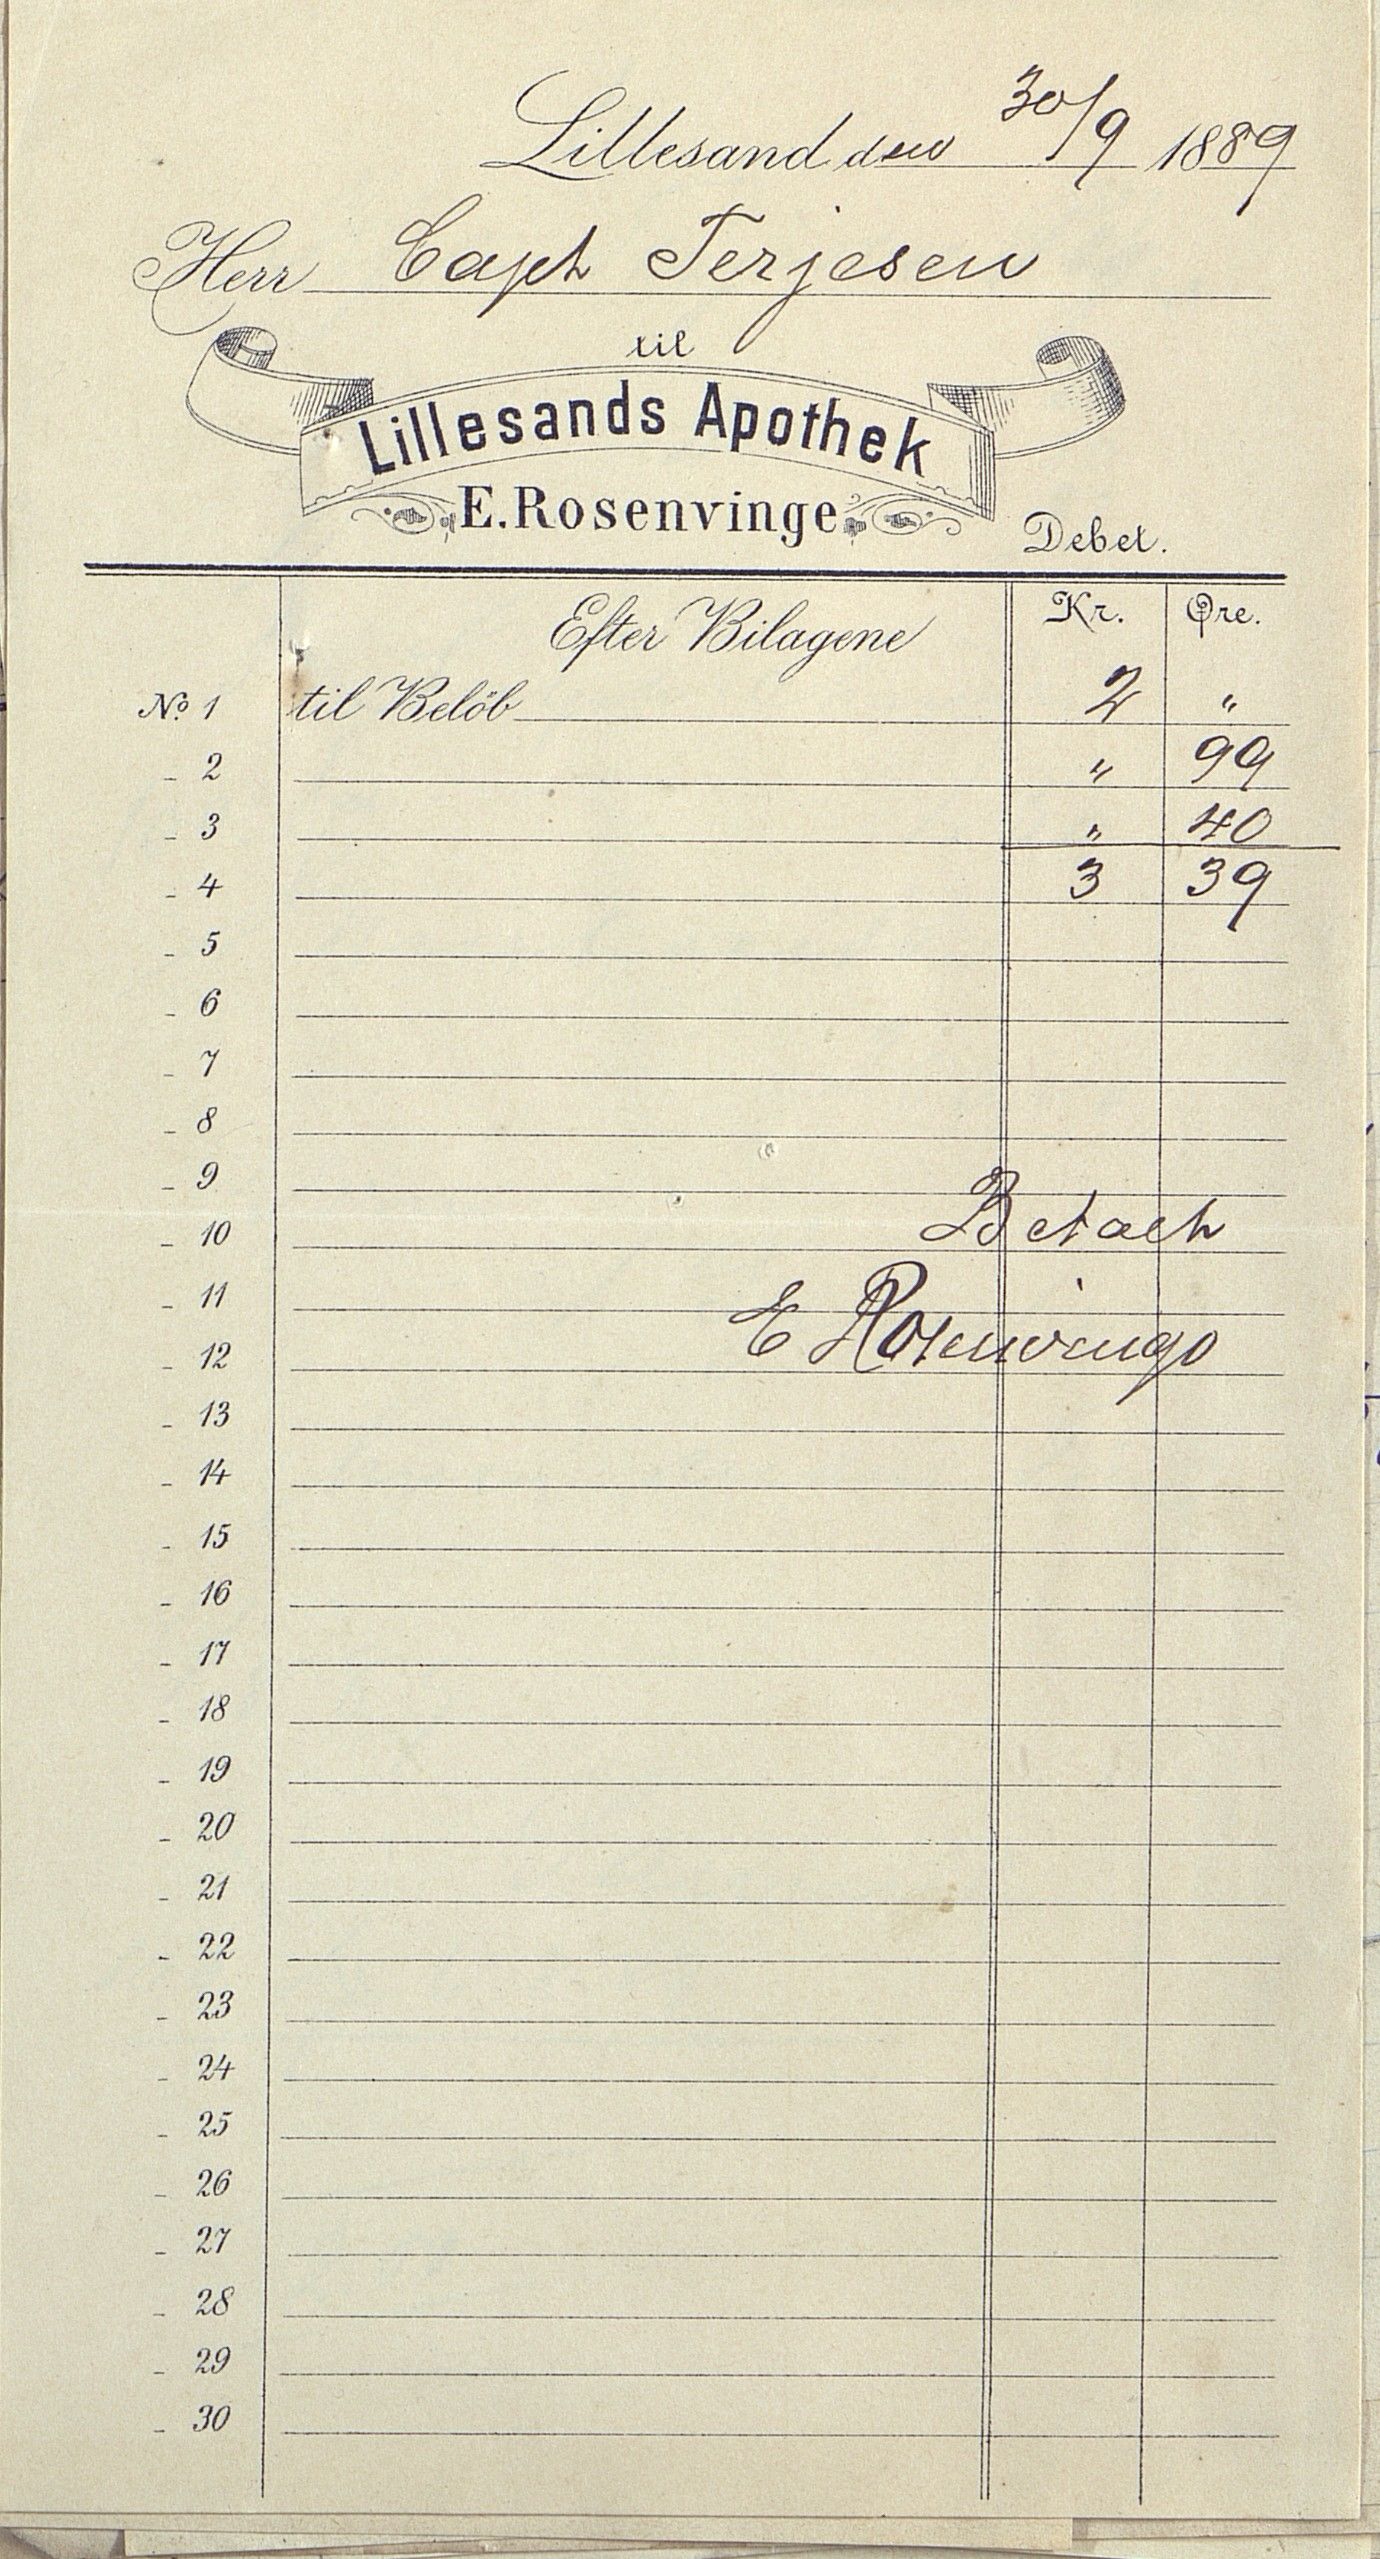 Lillesand den 30/9 1889
Herr Capt Terjesen
til
Lillesands Apothek
E. Rosenvinge
Debet.
Efter Bilagene Kr. Øre.
No. 1 til Belöb 2 "
- 2 " 99
- 3 " 40
- 4 3 39
- 5
- 6
- 7
- 8
- 9
- 10 Betalt
- 11
- 12 E Rosenvinge
- 13
- 14
- 15
- 16
- 17
- 18
- 19
- 20
- 21
- 22
- 23
- 24
- 25
- 26
- 27
- 28
- 29
- 30